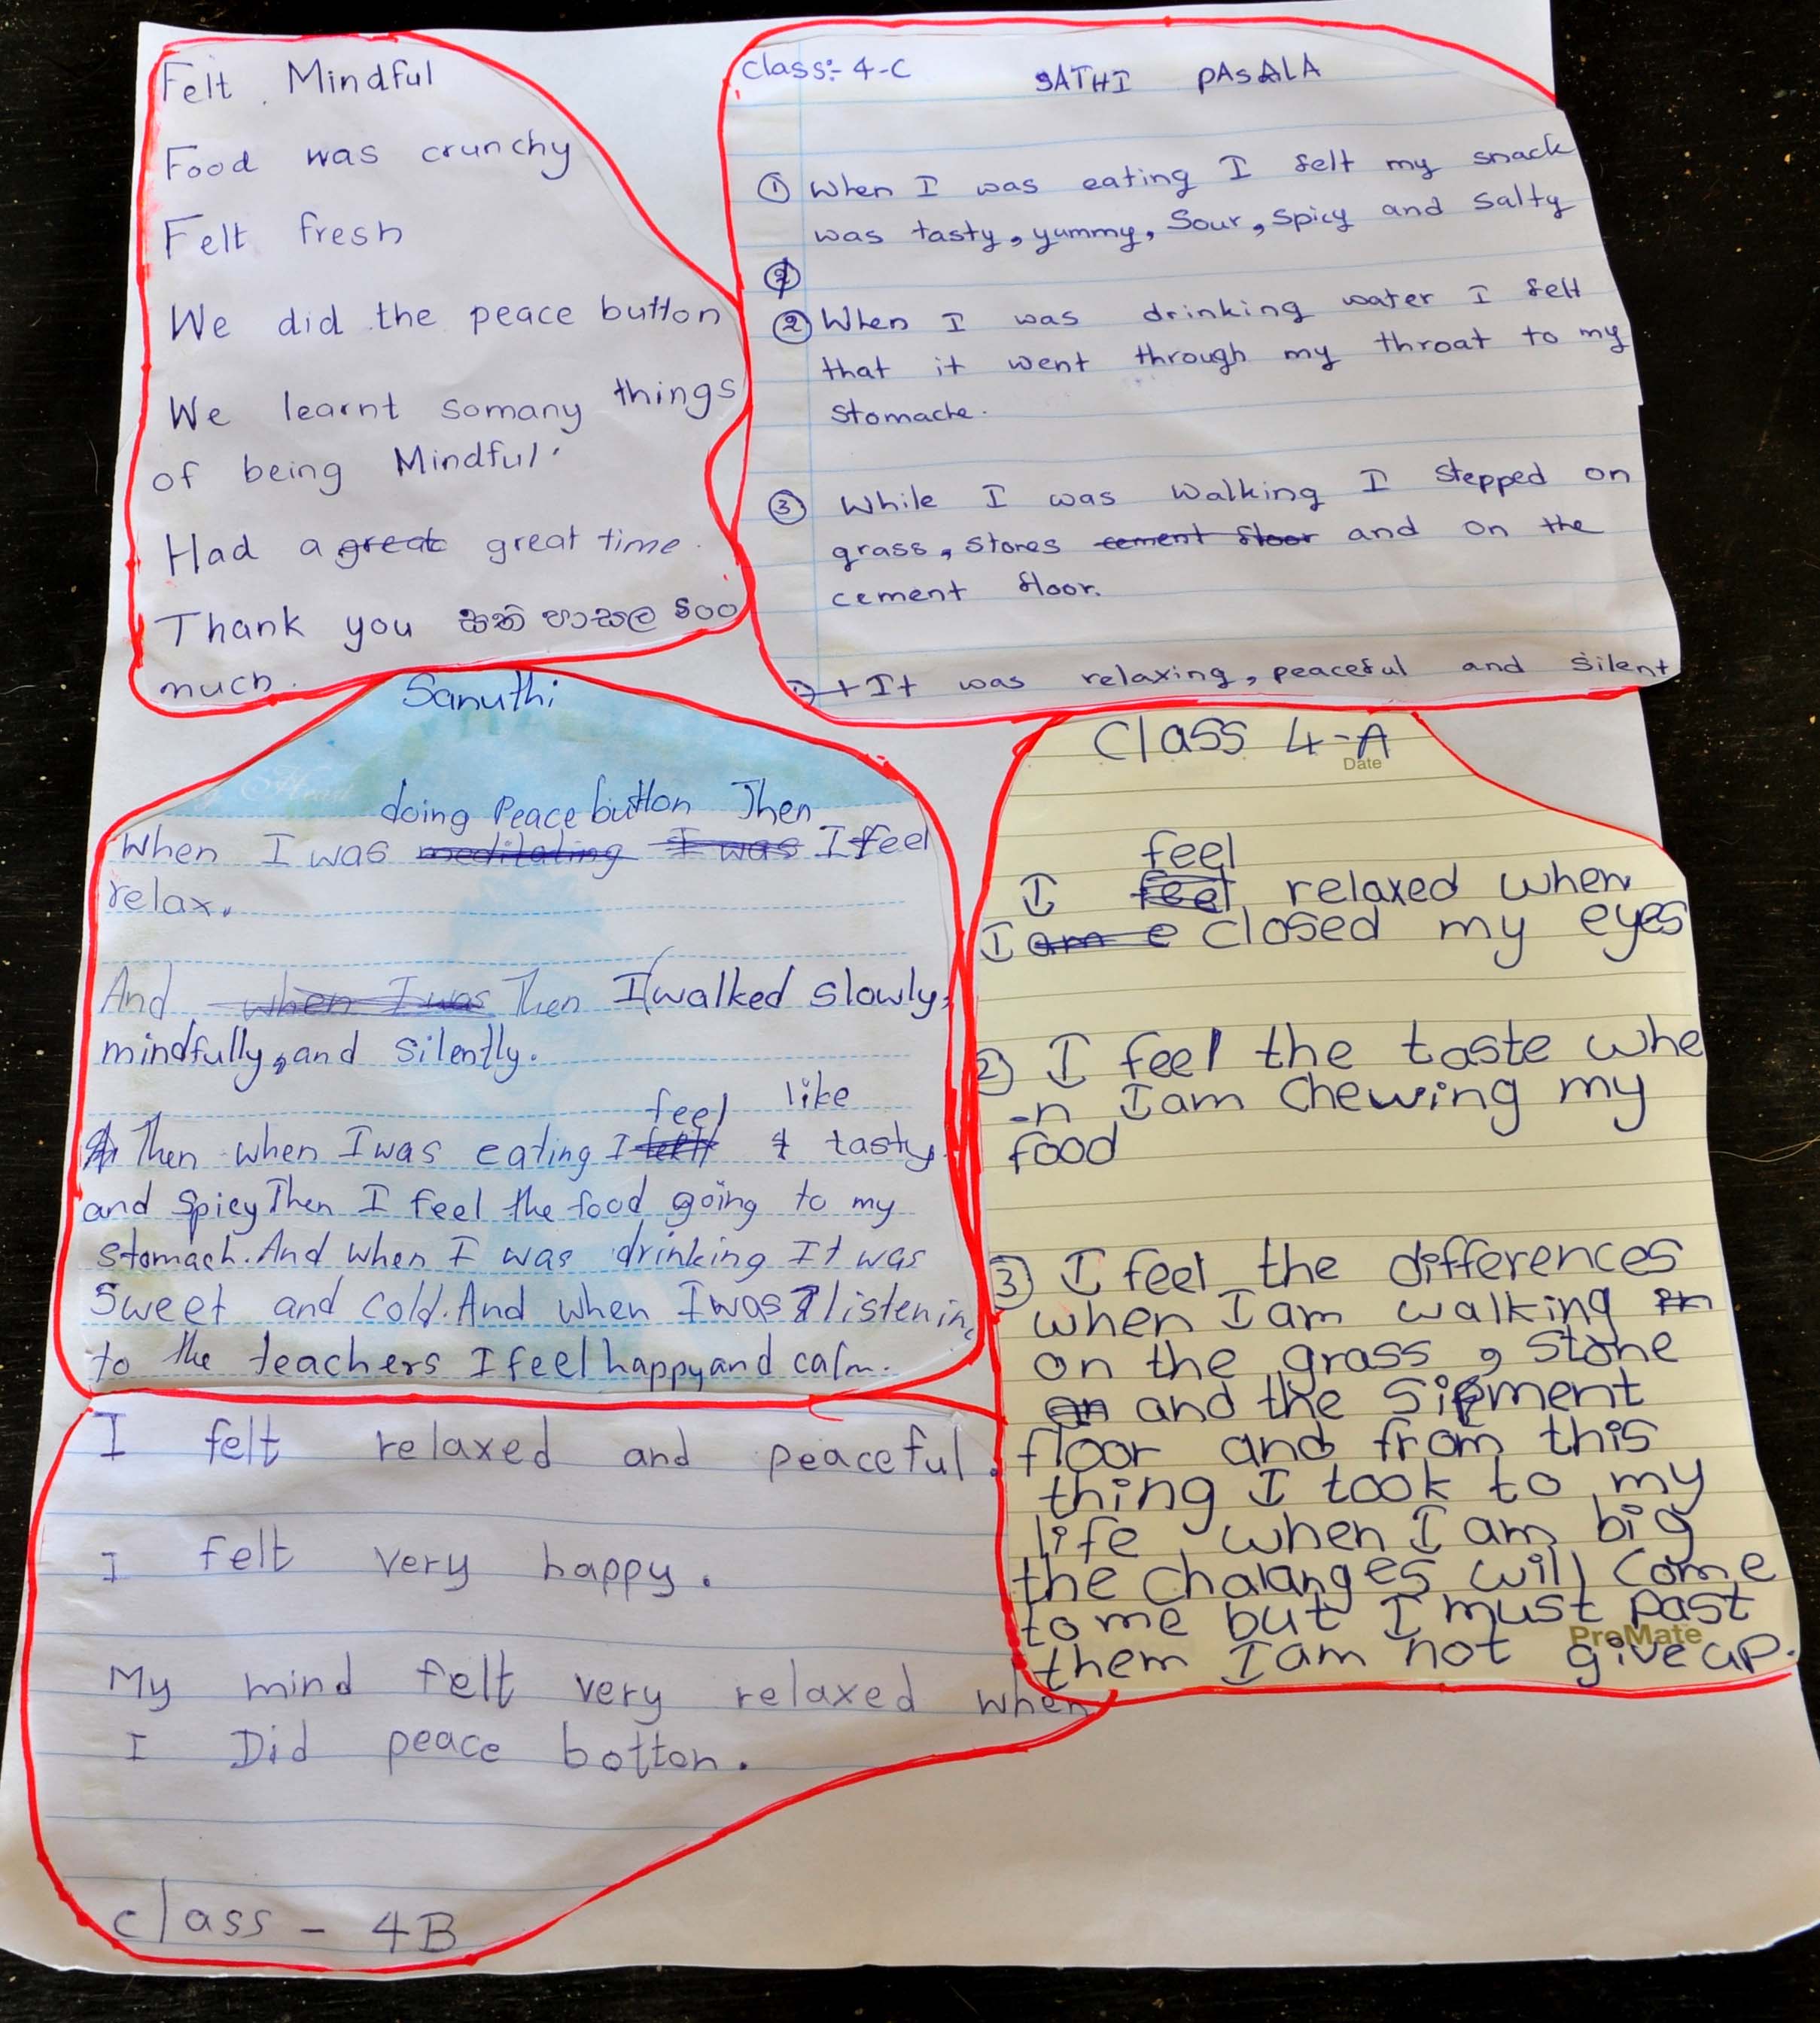 Felt Mindful
Food was crunchy
Felt fresh
We did the peace button
We learnt somany things
of being Mindful.
Had a great great time.
Thank you සති පාසල soo
much.
Class:- 4-C SATHI PASALA
① When I was eating I felt my snack
was tasty, yummy, Sour, spicy and salty
②
② When I was drinking water I felt
that it went through my throat to my
stomache.
③ While I was walking I stepped on
grass, stones cement floor and on the
cement floor.
+ It was relaxing, peaceful and silent
Sanuthi
doing Peace button Then
When I was meditating I was I feel
relax.
And when I was Then I walked slowly,
mindfully, and silently.
feel like
Then when I was eating I felt tasty
and spicy Then I feel the food going to my
stomach. And when I was drinking It was
Sweet and cold. And when I was listening
to the teachers I feel happy and calm.
Class 4-A
Date
feel
I feel relaxed when
I am e closed my eyes
2) I feel the taste whe
-n I am chewing my
food
3) I feel the differences
when I am walking in
on the grass, stone
an and the sipment
floor and from this
thing I took to my
life when I am big
the chalanges will come
to me but I must past
ProMate
them I am not give up.
I felt relaxed and peaceful.
I felt very happy.
My mind felt very relaxed when
I Did peace botton.
class - 4B